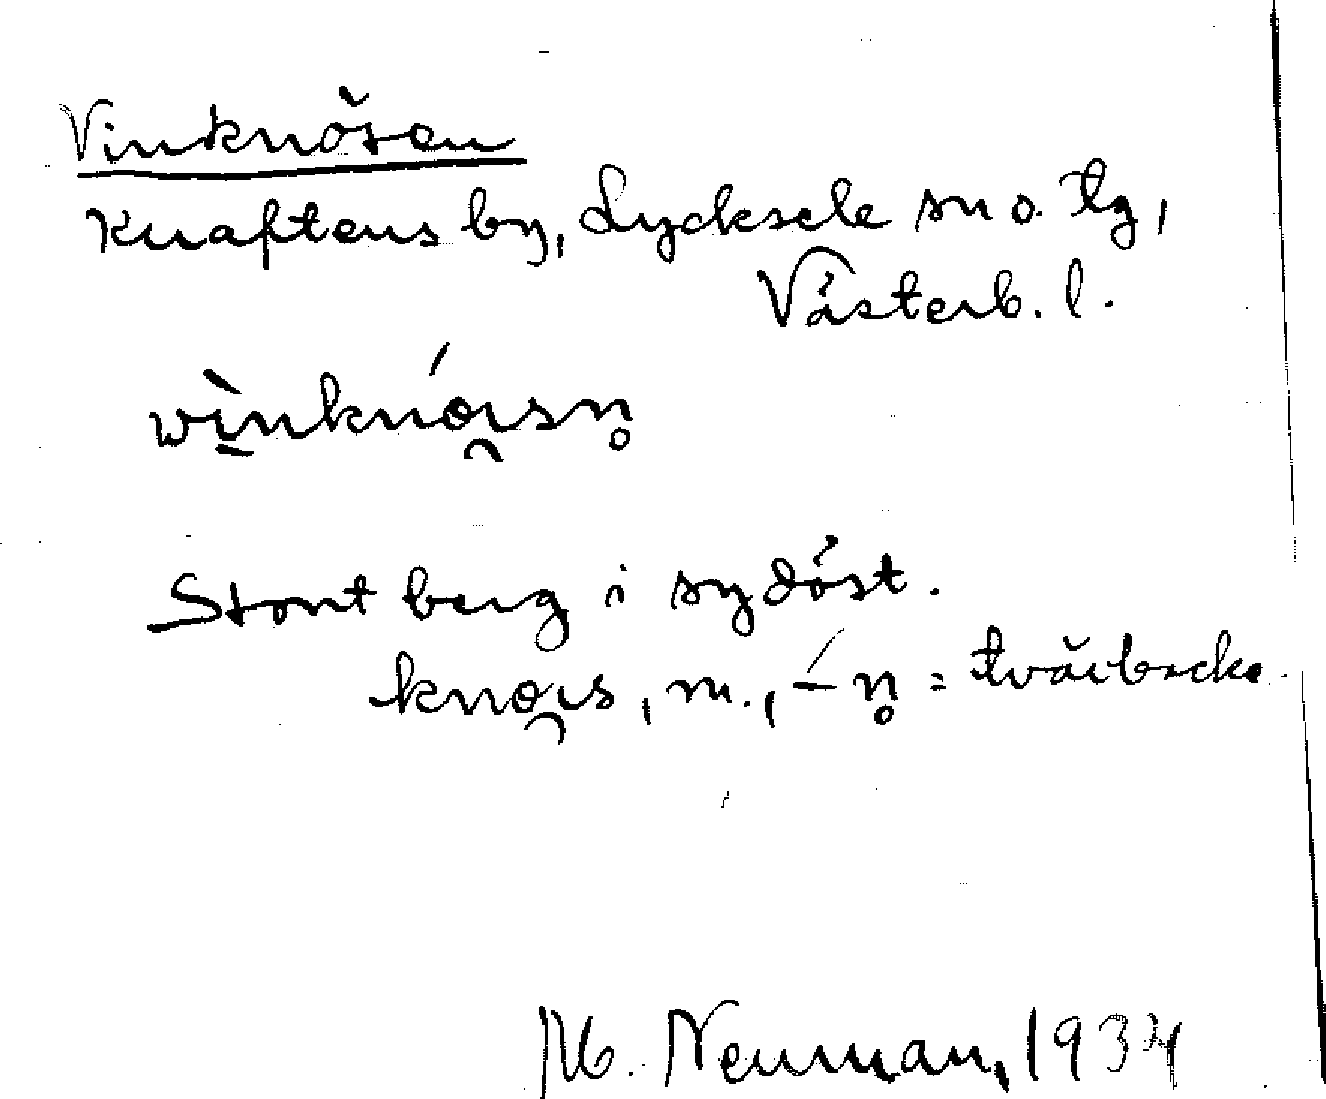 Vinknösen
Knaftens by, Lycksele sn o. tg,
Västerb. l.
Stort berg i sydöst.
m., = tvärbacke.
M. Neuman, 1934